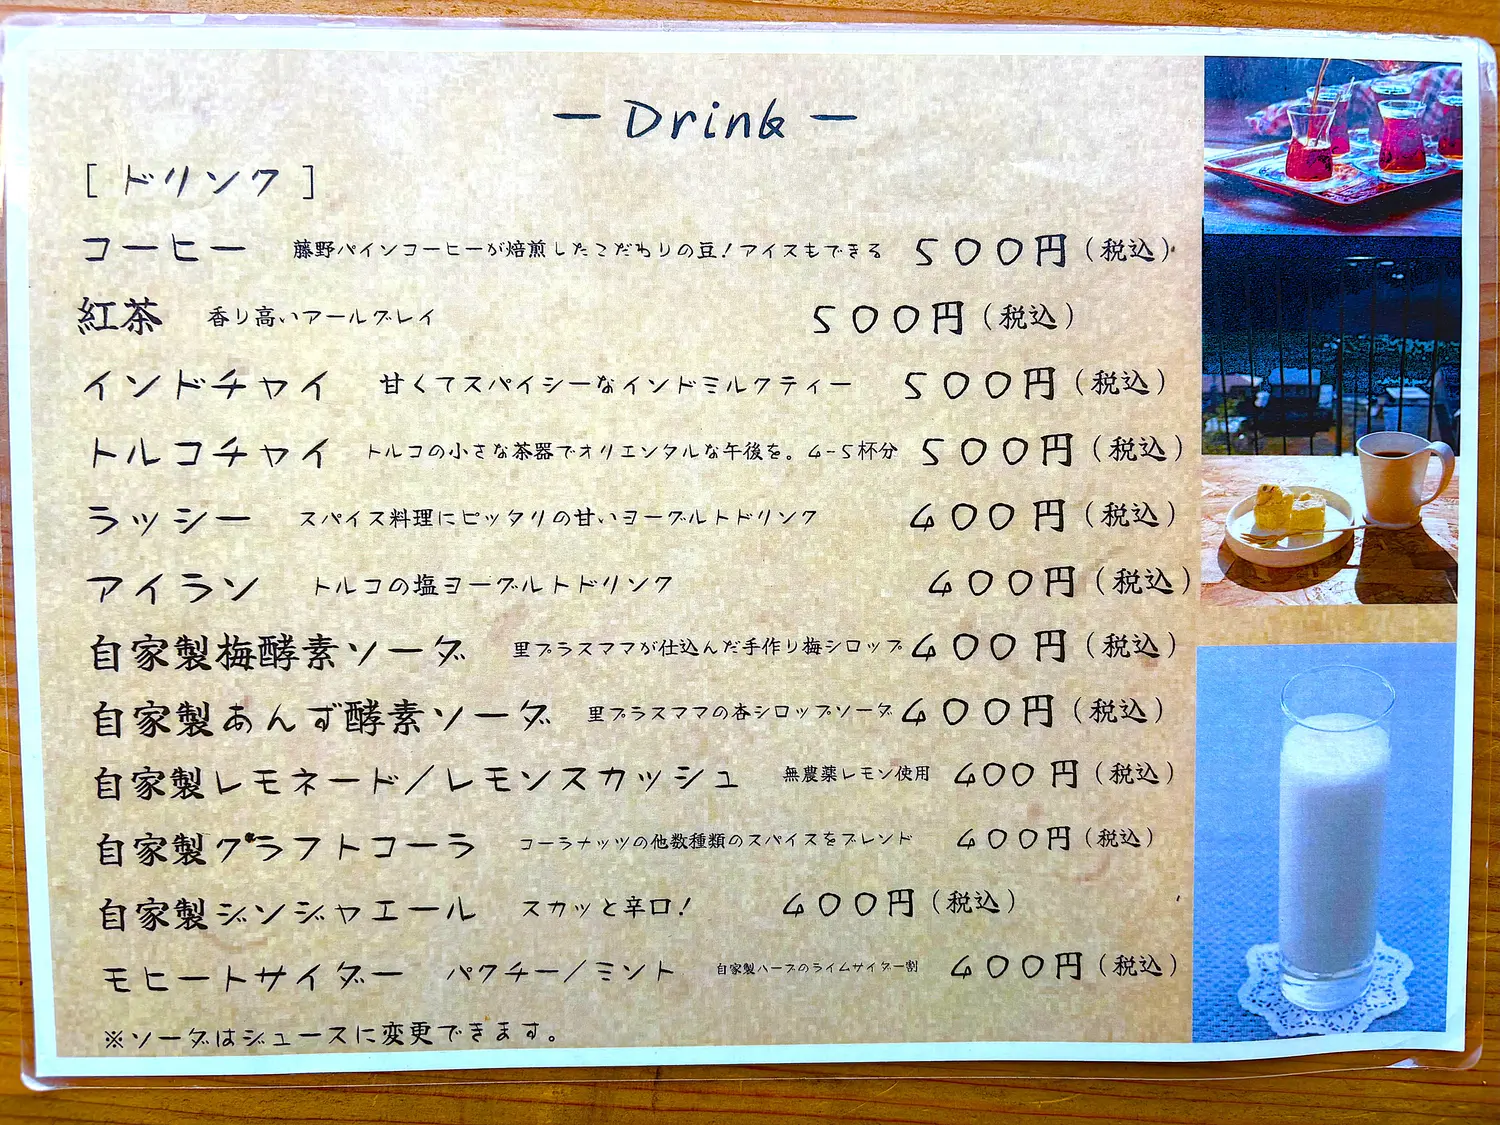 - Drink -
[ ドリンク ]
コーヒー 藤野パインコーヒーが焙煎したこだわりの豆！アイスもできる 500円（税込）
紅茶 香り高いアールグレイ 500円（税込）
インドチャイ 甘くてスパイシーなインドミルクティー 500円（税込）
トルコチャイ トルコの小さな茶器でオリエンタルな午後を。4-5杯分 500円（税込）
ラッシー スパイス料理にピッタリの甘いヨーグルトドリンク 400円（税込）
アイラン トルコの塩ヨーグルトドリンク 400円（税込）
自家製梅酵素ソーダ 里プラスママが仕込んだ手作り梅シロップ 400円（税込）
自家製あんず酵素ソーダ 里プラスママの杏シロップソーダ 400円（税込）
自家製レモネード／レモンスカッシュ 無農薬レモン使用 400円（税込）
自家製クラフトコーラ コーラナッツの他数種類のスパイスをブレンド 400円（税込）
自家製ジンジャエール スカッと辛口！ 400円（税込）
モヒートサイダー パクチー／ミント 自家製ハーブのライムサイダー割 400円（税込）
※ソーダはジュースに変更できます。